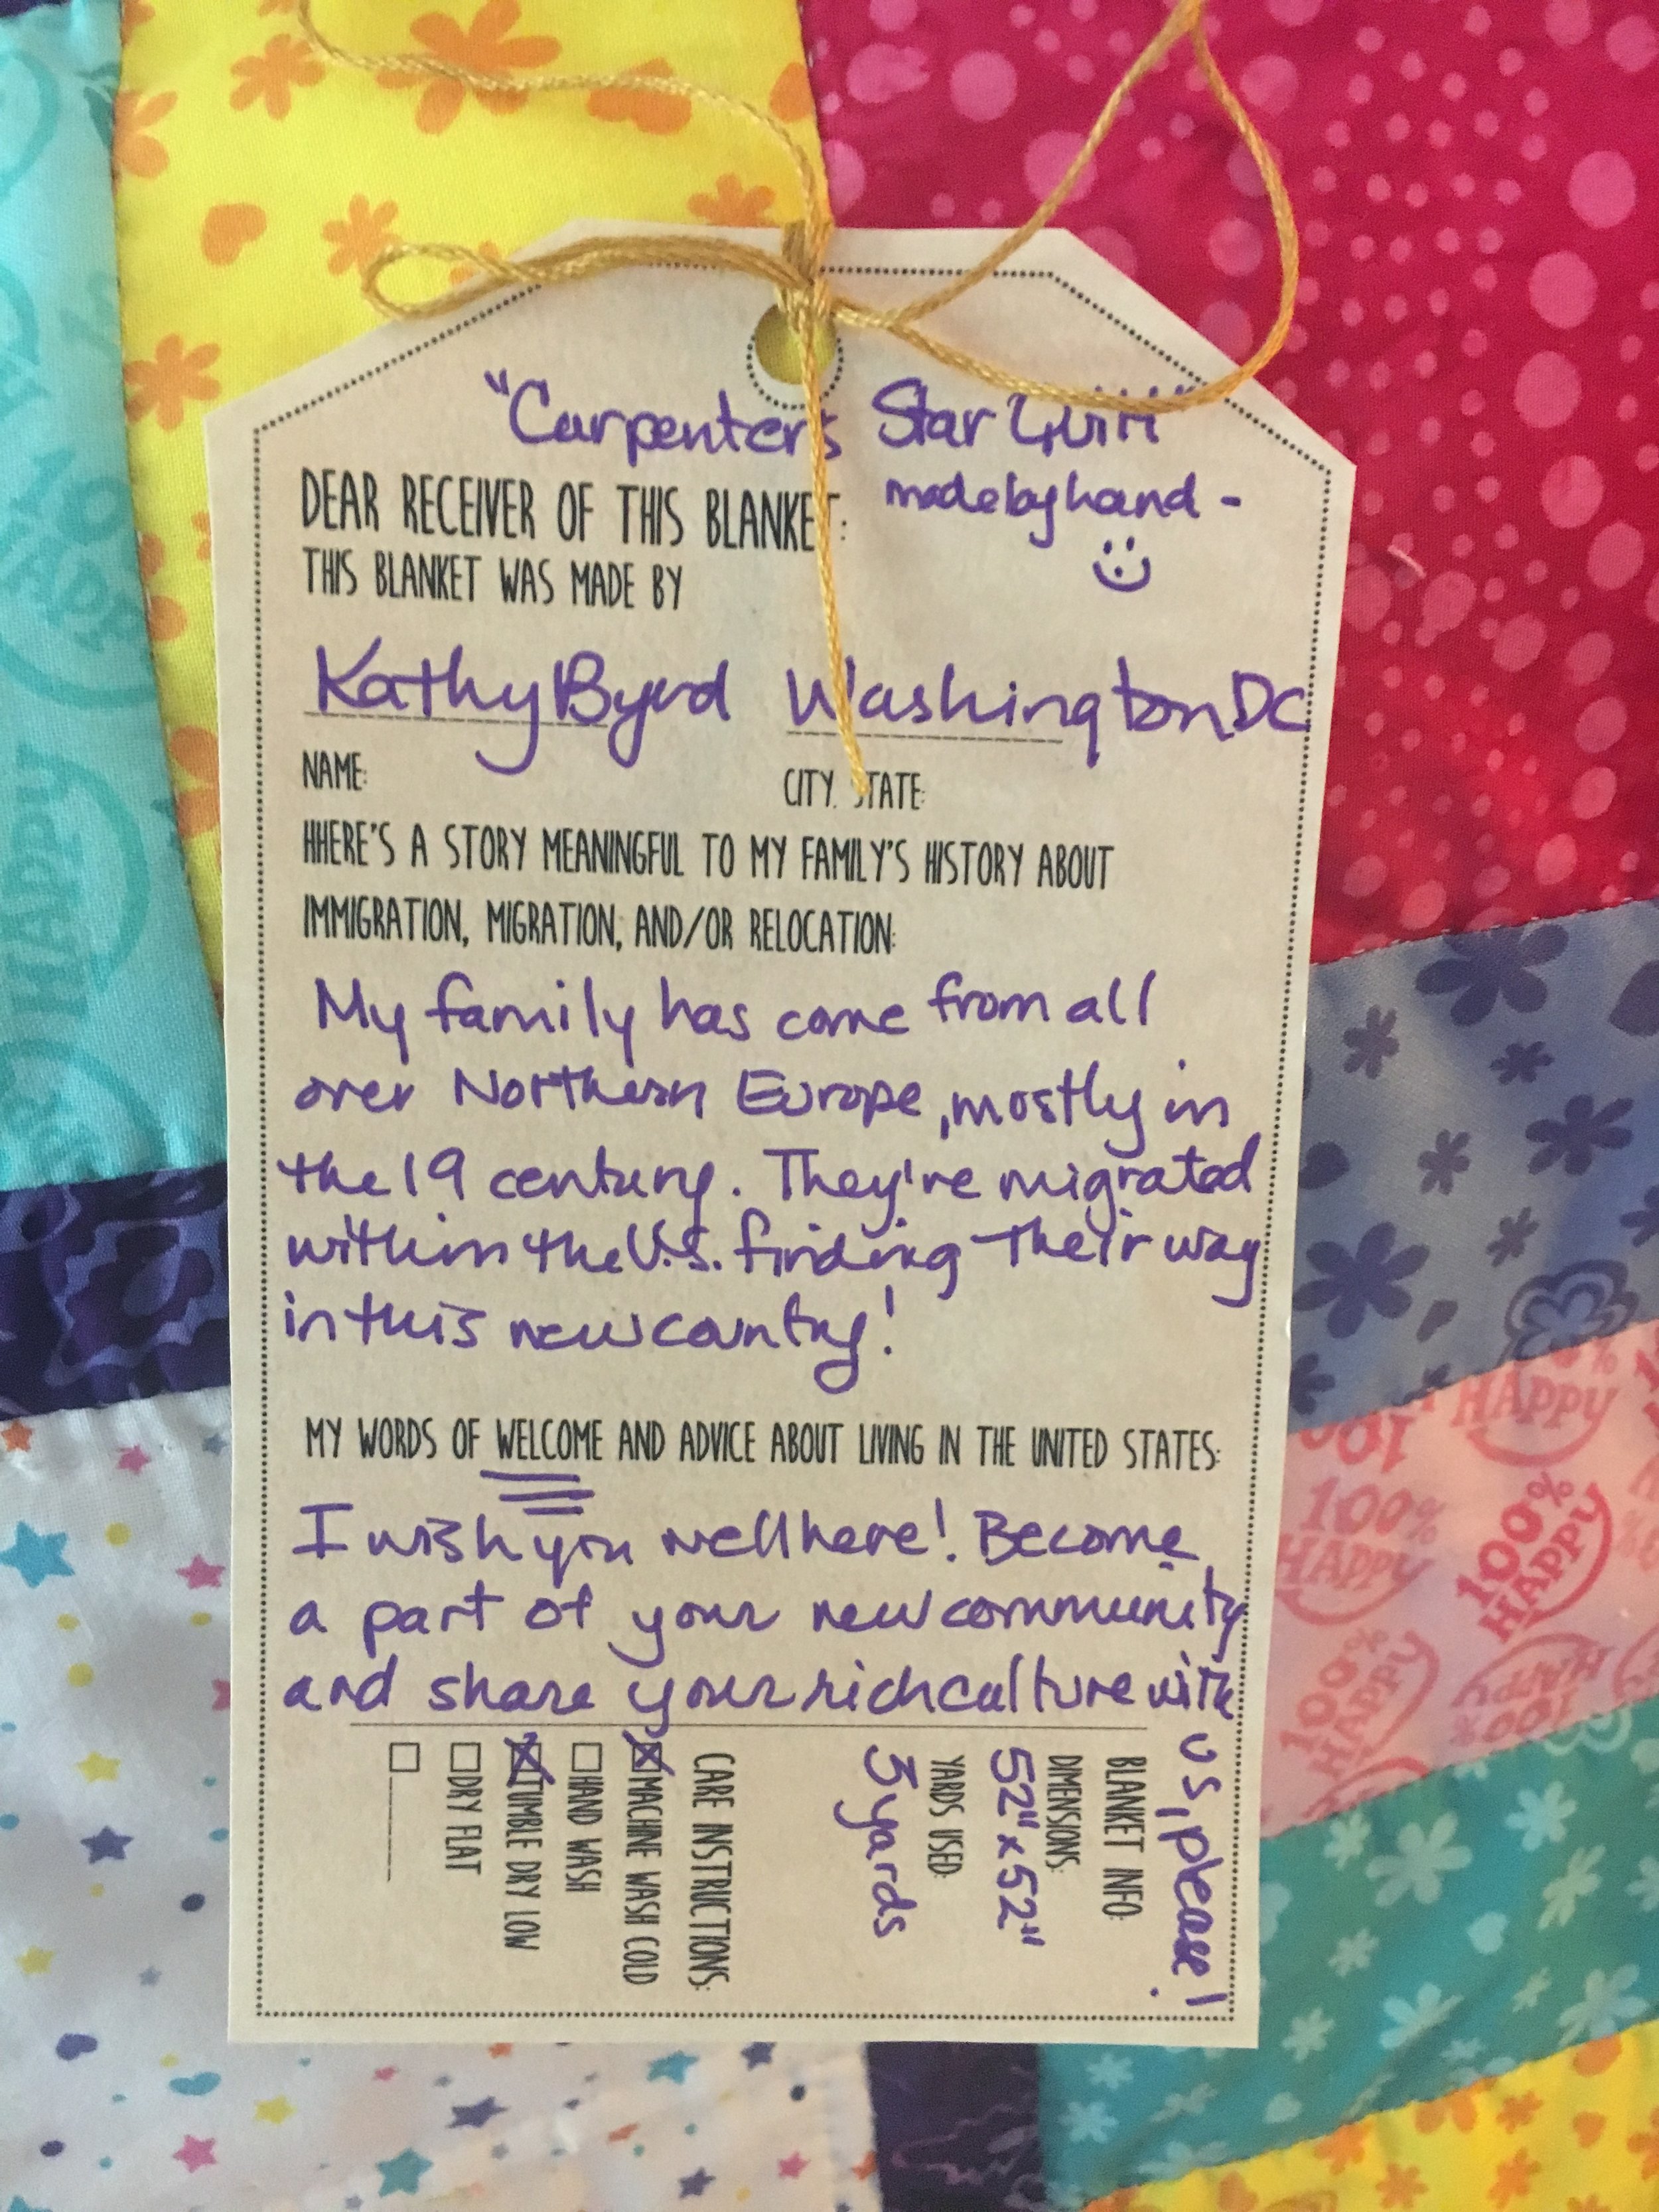 "Carpenters Star Quilt"
made by hand -
DEAR RECEIVER OF THIS BLANKET:
THIS BLANKET WAS MADE BY
Kathy Byrd Washington DC
NAME: CITY, STATE:
HHERE'S A STORY MEANINGFUL TO MY FAMILY'S HISTORY ABOUT
IMMIGRATION, MIGRATION, AND/OR RELOCATION:
My family has come from all
over Northern Europe, mostly in
the 19 century. They've migrated
within the U.S. finding their way
in this new country!
MY WORDS OF WELCOME AND ADVICE ABOUT LIVING IN THE UNITED STATES:
I wish you well here! Become
a part of your new community
and share your rich culture with
us, please!
BLANKET INFO:
DIMENSIONS:
52" x 52"
YARDS USED:
3 yards
CARE INSTRUCTIONS:
MACHINE WASH COLD
HAND WASH
TUMBLE DRY LOW
DRY FLAT
HAPPY
HAPPY
100%
HAPPY
100%
HAPPY
100%
HAPPY
100%
HAPPY